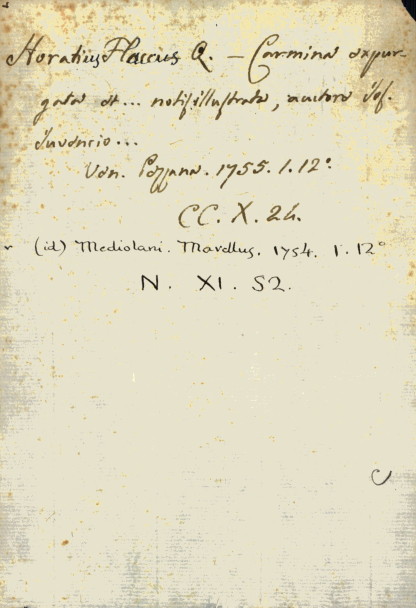 Horatius Flaccus Q. — Carmina expur-
gata et ... notis illustrata, auctore Jos.
Juvencio ...
Ven. Pezzana. 1755. 1. 12°.
CC. X. 24.
(id) Mediolani. Marellus. 1754. 1. 12°
N. XI. 52.